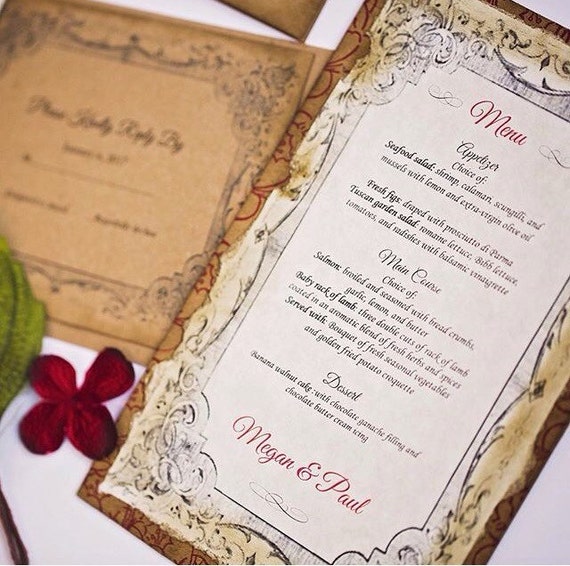 Please Kindly Reply By
Menu
Appetizer
Choice of:
Seafood salad: shrimp, calamari, scungilli, and
mussels with lemon and extra-virgin olive oil
Fresh figs: draped with prosciutto di Parma
Tuscan garden salad: romaine lettuce, Bibb lettuce,
tomatoes, and radishes with balsamic vinaigrette
Main Course
Choice of:
Salmon: broiled and seasoned with bread crumbs,
garlic, lemon, and butter
Baby rack of lamb: three double cuts of rack of lamb
coated in an aromatic blend of fresh herbs and spices
Served with: Bouquet of fresh seasonal vegetables
and golden fried potato croquette
Dessert
Banana walnut cake -with chocolate ganache filling and
chocolate butter cream icing
Megan & Paul